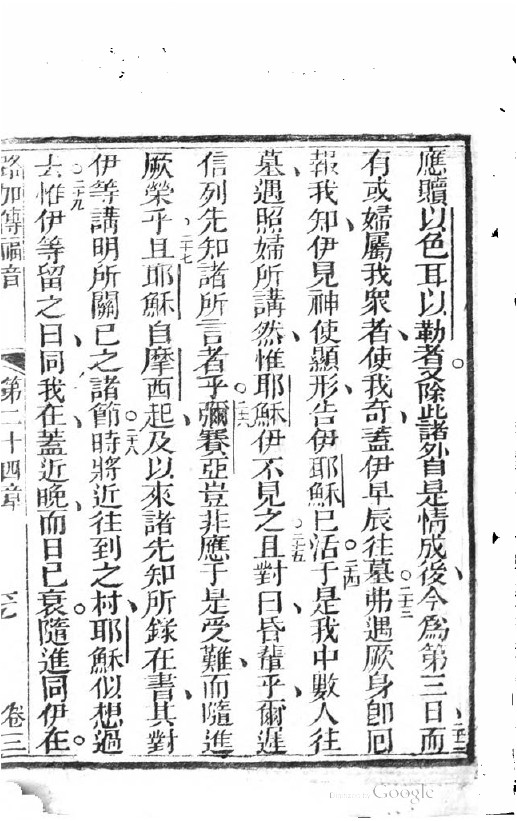 應贖以色耳以勒者。又除此諸外自是情成後今為第三日而
有或婦屬我衆者使我奇蓋伊早辰往墓。二十三弗遇厥身卽囘
報我知伊見神使顯形告伊耶穌已活。二十四于是我中數人往
墓遇照婦所講然惟耶穌伊不見之。二十五且對曰昏輩乎爾遲
信列先知諸所言者乎。二十六彌賽亞豈非應于是受難而隨進
厥榮乎。二十七且耶穌自摩西起及以來諸先知所錄在書其對
伊等講明所關已之諸節。二十八時將近往到之村耶穌似想過
去。二十九惟伊等留之曰同我在蓋近晚而日已衰。隨進同伊在。
路加傳福音 第二十四章 卷三
Google